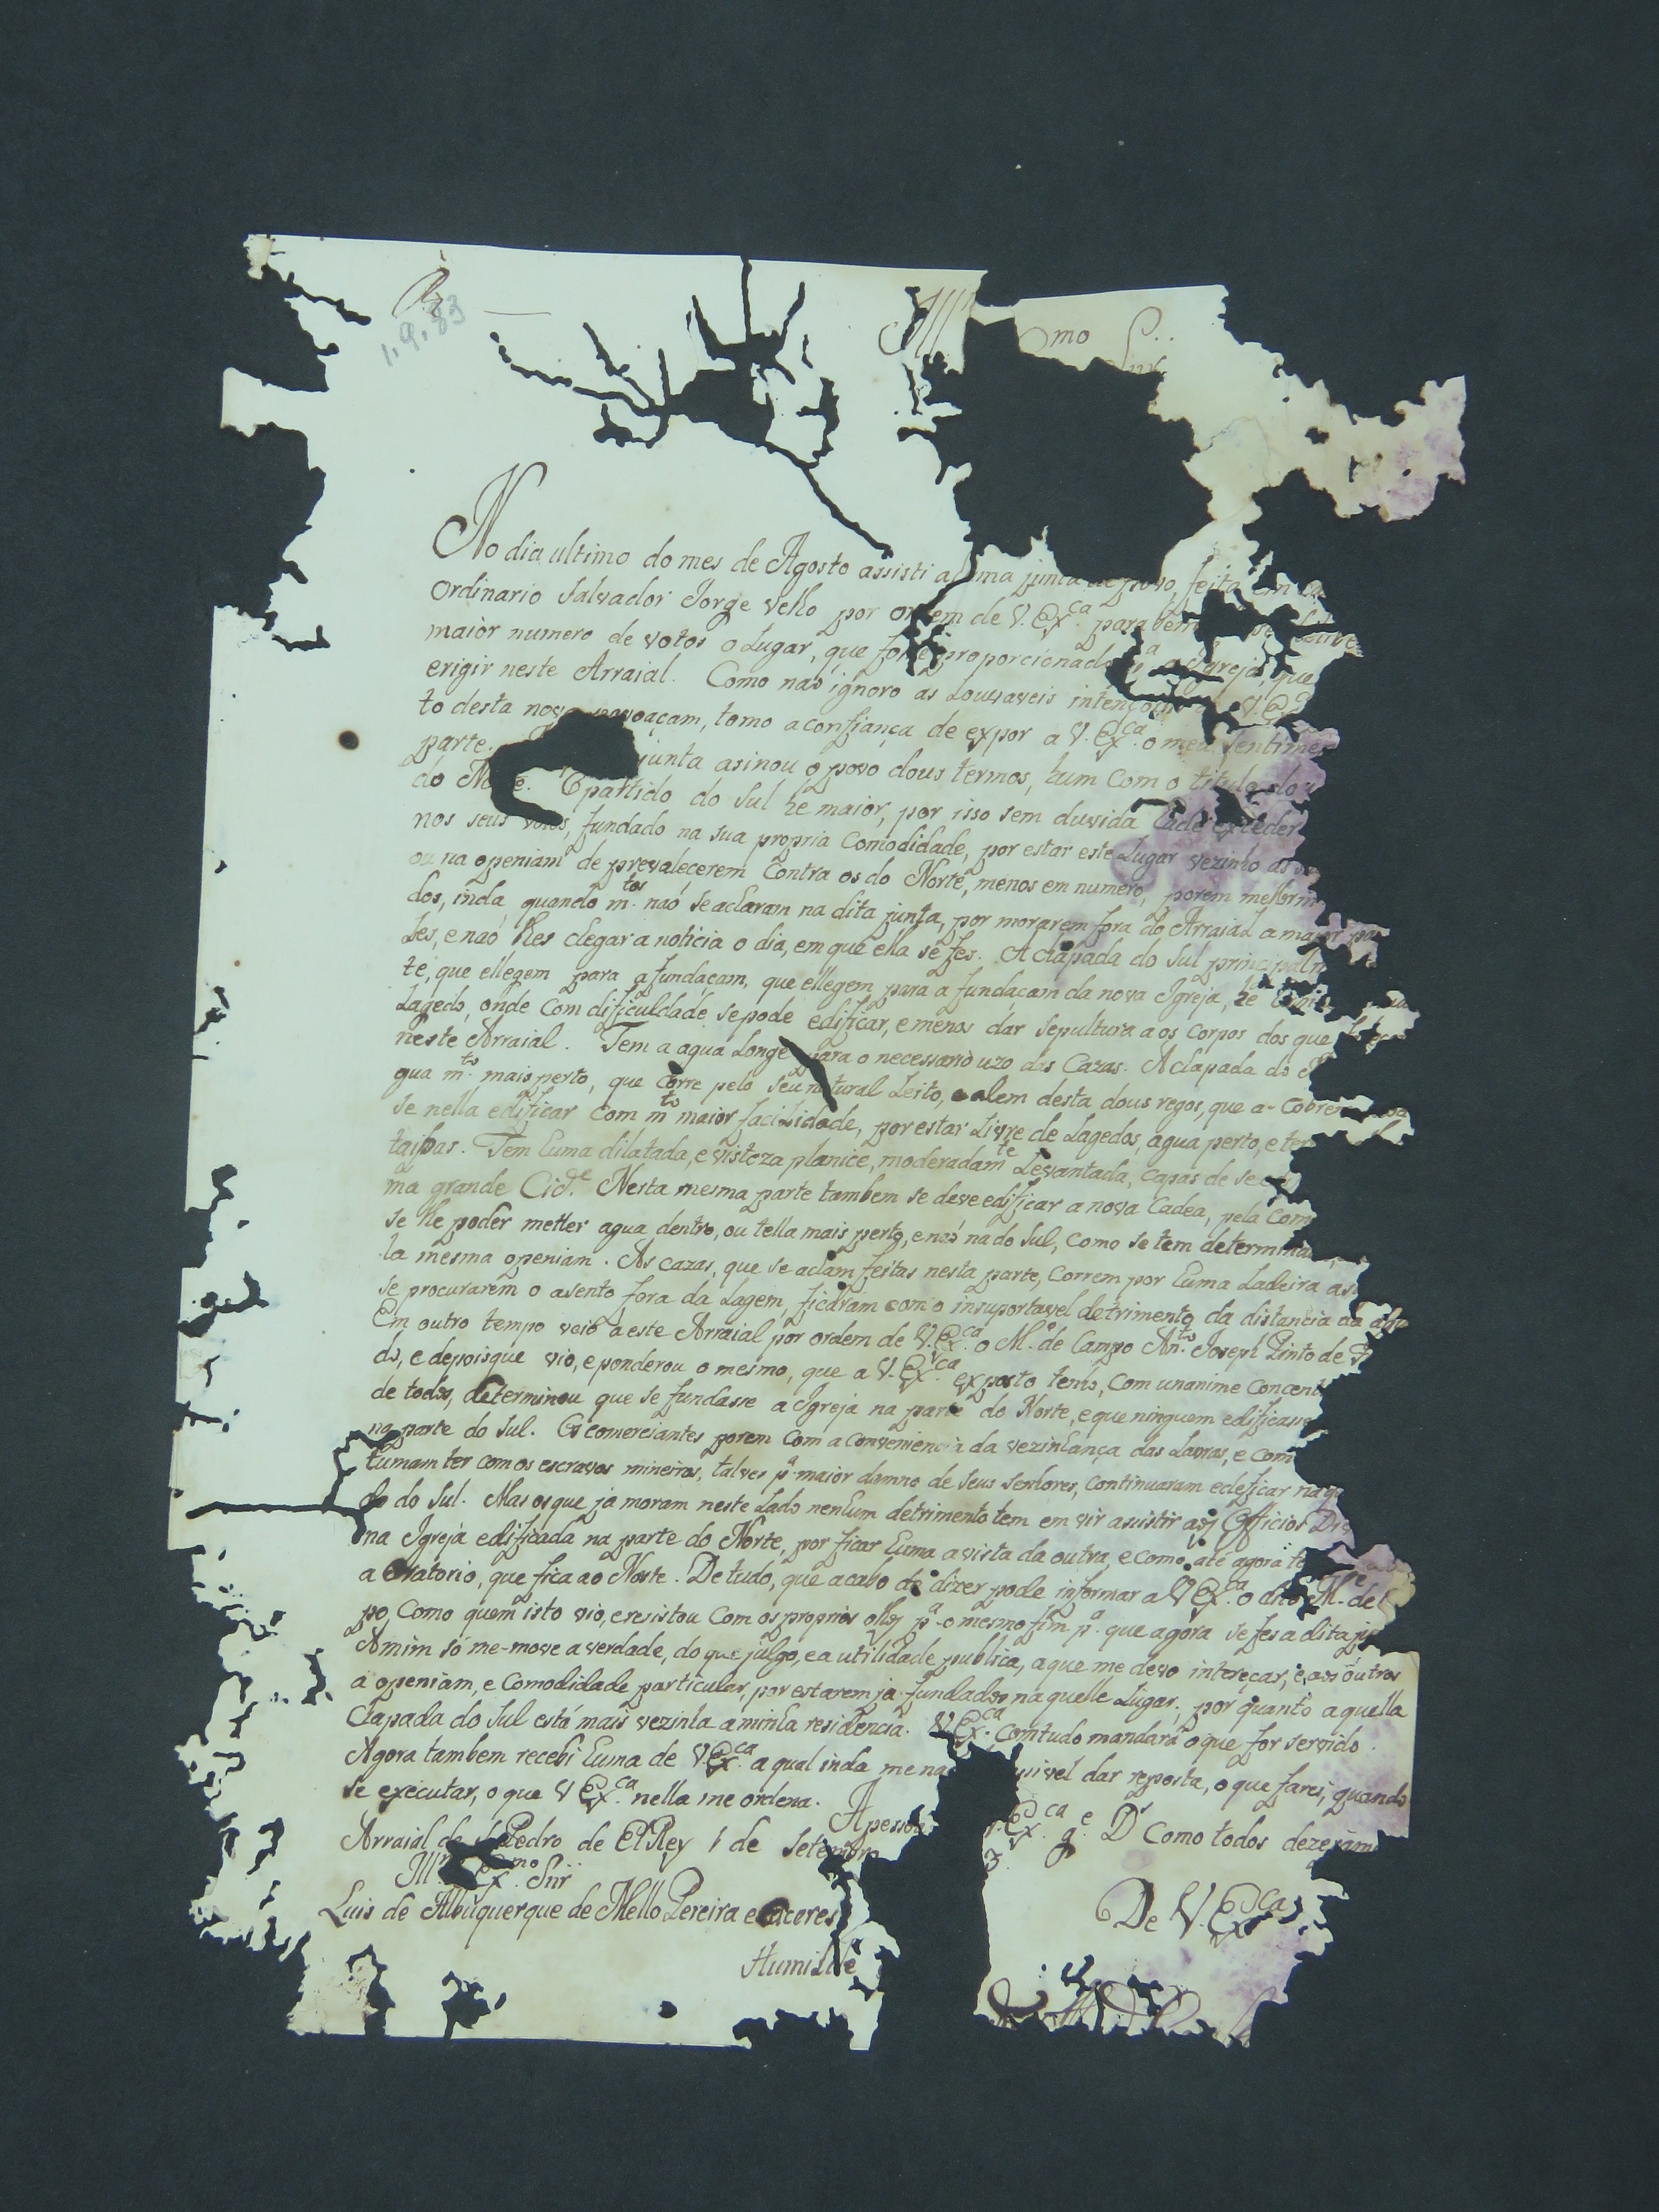 R
1.9.83
Ill mo S
No dia ultimo do mes de Agosto assisti a uma junta de povo, feita
Ordinario Salvador Jorge Velho por ordem de V. Exca. para
maior numero de votos o Lugar, que fose proporcionado pa. a Igreja, que
erigir neste Arraial. Como naõ ignoro as Louvaveis intençoins V. E
to desta nova povoaçam, tomo a confiança de expor a V. Exca. o meu sentimen
parte. junta asinou o povo dous termos, hum com o titulo do
do Norte. O partido do Sul he maior, por isso sem duvida hade exceder
nos seus votos, fundado na sua propria comodidade, por estar este Lugar vezinho as
ou na openiam de prevalecerem contra os do Norte, menos em numero, porem melhor
dos, inda quando mtos. naõ se acharam na dita junta, por morarem fora do Arraial a maior par
Les, e naõ lhes chegar a noticia o dia, em que ella se fes. A chapada do Sul principalm
te, que ellegem para a fundaçam, que ellegem para a fundaçam da nova Igreja, he
Lagedo, onde com dificuldade se pode edificar, e menos dar sepultura a os corpos dos que
neste Arraial. Tem a agua Longe para o necessario uzo das Cazas. A chapada do
gua mto. mais perto, que corre pelo seu natural Leito, e alem desta dous regos, que a-cobrem
se nella edificar com mta maior facilidade, por estar Livre de Lagedos, agua perto, e ter
taipas. Tem huma dilatada, e vistoza planice, moderadamte Levantada, capas de se
ma grande Cide. Nesta mesma parte tambem se deve edificar a nova Cadea, pela com
se lhe poder metter agua dentro, ou tella mais perto, e naõ na do Sul, como se tem determina
la mesma openiam. As cazas, que se acham feitas nesta parte, correm por huma Ladeira, as
se procurarem o asento fora da Lagem, ficaram com o insuportavel detrimento da distancia da agu
Em outro tempo veio a este Arraial por ordem de V. Exca. o Me. de Campo Anto. Joseph Pinto de F
do, e depois que vio, e ponderou o mesmo, que a V. Exca. exposto tenho, com unanime concent
de todos, determinou que se fundasse a Igreja na parte do Norte, e que ninguem edificasse
na parte do Sul. Os comerciantes porem com a conveniencia da vezinhança das Lavras, e com
tumam ter com os escravos mineiros, talves pa. maior damno de seus senhores, continuaram edeficar na
do do Sul. Mas os que ja moram neste Lado nenhum detrimento tem em vir assistir aos Officios Di
na Igreja edificada na parte do Norte, por ficar huma a vista da outra, e como até agora te
a Oratorio, que fica ao Norte. De tudo, que acabo de dizer pode informar a V Exca. o dito Me. de
po, como quem isto vio, e resistou com os proprios olhos pa. o mesmo fim pa. que agora se fes a dita
A mim só me-move a verdade, do que julgo, e a utilidade publica, a que me devo intereçar, e a os outros
a openiam, e comodidade particular, por estarem ja fundados na quelle Lugar; por quanto a quella
Chapada do Sul está mais vezinha a minha residencia. V Exca. comtudo mandará o que for servido.
Agora tambem recebi huma de V. Exca. a qual inda me naõ dar reposta, o que farei, quando
se executar, o que V Exca. nella me ordena.
A pessoa Exca. ge. Ds. como todos dezejam
Arraial de S. Pedro de ElRey 1 de Setembro 3.
Illmo Exmo. Snr
Luis de Albuquerque de Mello Pereira e Caceres
De V. Exca.
Humilde